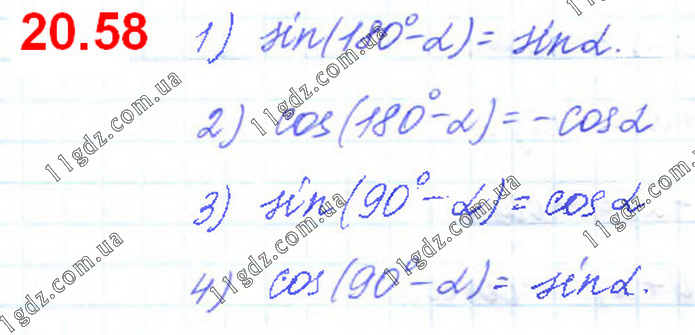 20.58 1) sin(180°-α)= sinα.
2) cos(180°-α)=-cosα
3) sin(90°-α)= cosα
4) cos(90°-α)= sinα.
11gdz.com.ua
11gdz.com.ua
11gdz.com.ua
11gdz.com.ua
11gdz.com.ua
11gdz.com.ua